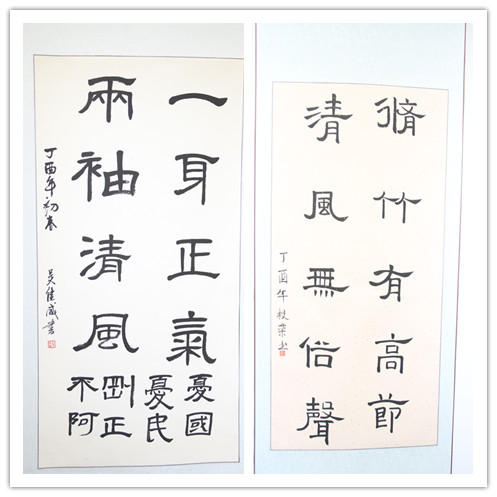 一身正氣
兩袖清風
憂國
憂民
剛正
不阿
丁酉年初春
脩竹有高節
清風無俗聲
丁酉年